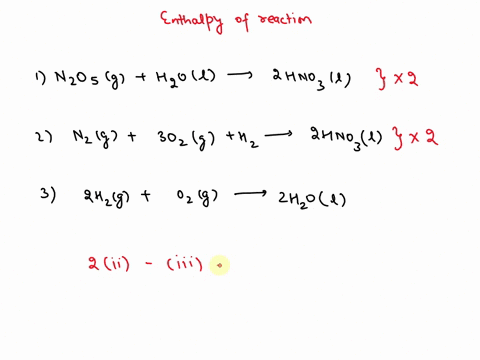 Enthalpy of reaction
1) N2O5(g) + H2O(l) ⟶ 2HNO3(l) } × 2
2) N2(g) + 3O2(g) + H2 ⟶ 2HNO3(l) } × 2
3) 2H2(g) + O2(g) ⟶ 2H2O(l)
2(ii) - (iii)